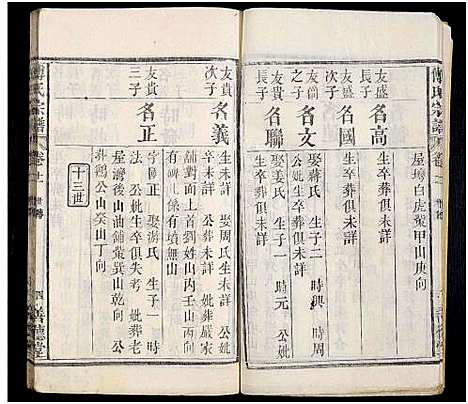 傅氏宗譜
卷之
屋塆白虎嘴甲山庚向
友盛次子
名高
生卒葬俱未詳
友盛長子
名國
生卒葬俱未詳
友尚之子
名文
娶蔣氏 生子二 時興 時周
公妣生卒葬俱未詳
友貴長子
名聯
娶姜氏 生子一 時元 公妣
生卒葬俱未詳
友貴次子
名義
生未詳 娶周氏生未詳
辛未詳 公葬未詳 妣葬嚴家
對面山上
形係有墳無山
友貴三子
名正
字國正 娶游氏 生子一 時
法 公妣生卒俱失考 妣葬老
屋塆後山油鋪嘴巽山乾向 公
葬鷄公山癸山丁向
十三世
傅氏宗譜
卷之
四